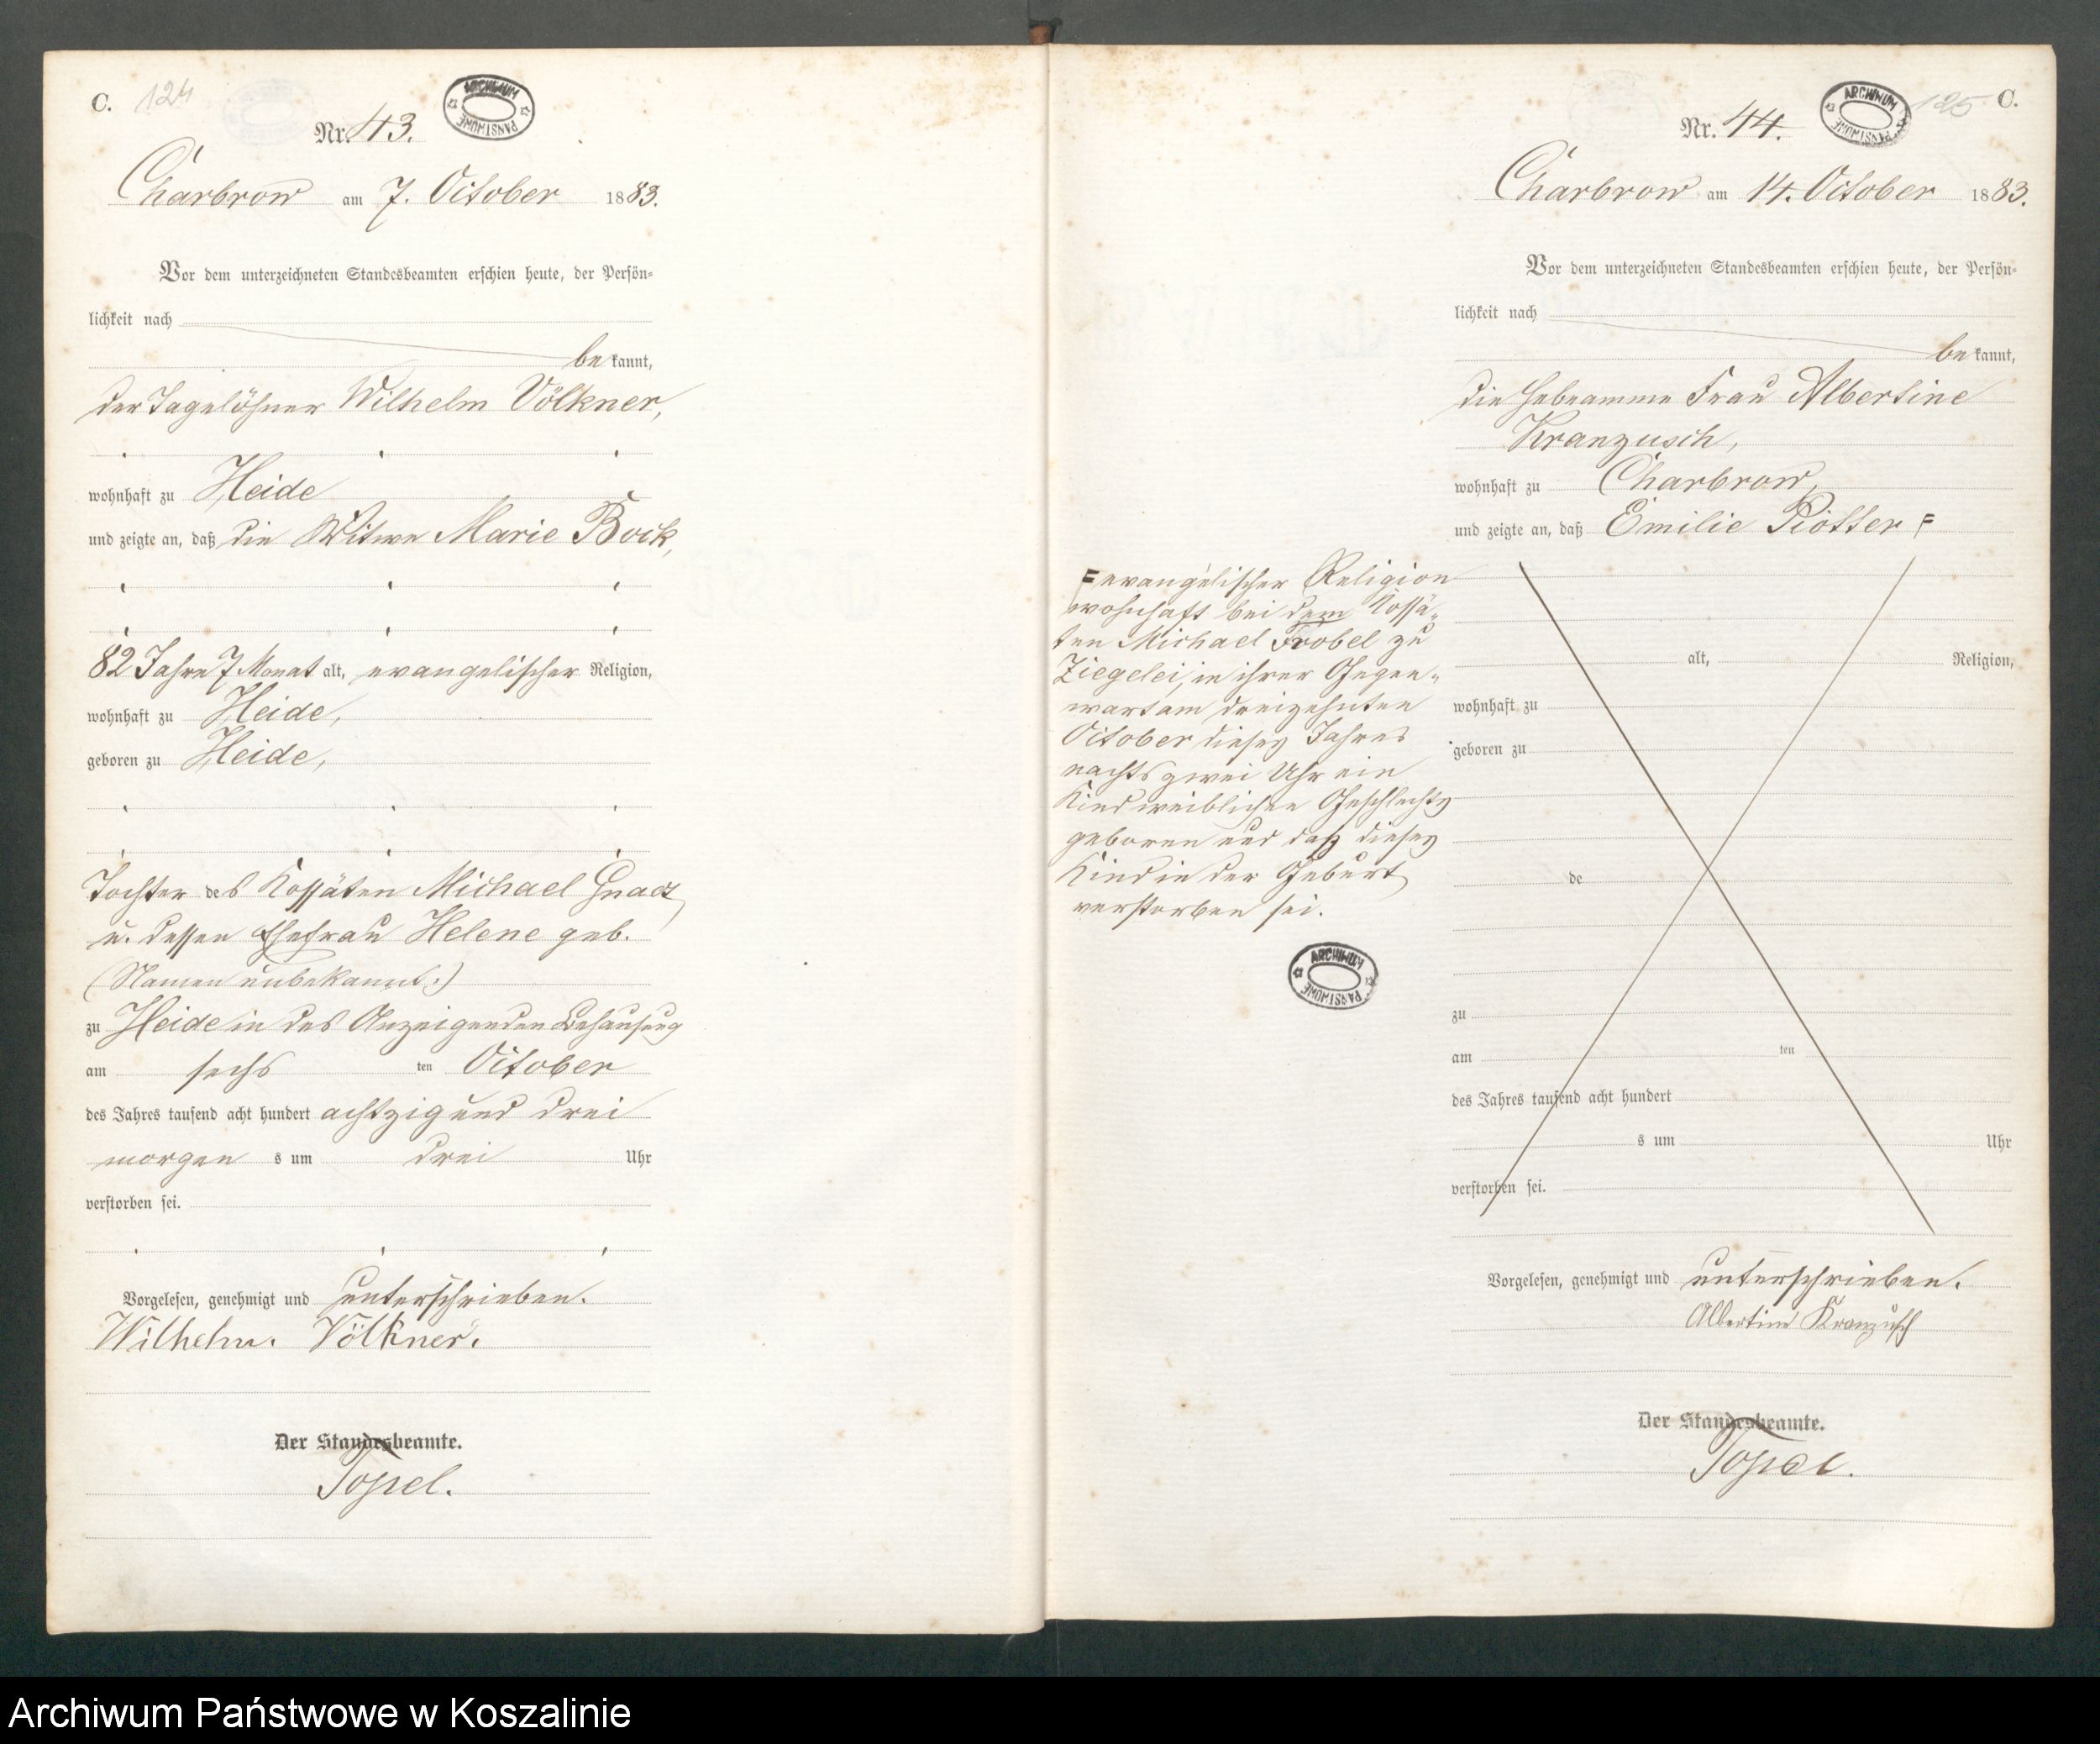 C. 124
Nr. 43.
ARCHIWUM PAŃSTWOWE
Charbrow am 7. October 1883.
Vor dem unterzeichneten Standesbeamten erschien heute, der Persön-
lichkeit nach
bekannt,
der Tagelöhner Wilhelm Völkner,
wohnhaft zu Heide
und zeigte an, daß die Witwe Marie Bock,
82 Jahre 7 Monat alt, evangelischer Religion,
wohnhaft zu Heide,
geboren zu Heide,
Tochter des Kossäten Michael Gnadt
u. dessen Ehefrau Helene geb.
(Namen unbekannt.)
zu Heide in des Anzeigenden Behausung
am sechsten October
des Jahres tausend acht hundert achtzig und drei
morgens um drei Uhr
verstorben sei.
Vorgelesen, genehmigt und unterschrieben.
Wilhelm. Völkner.
Der Standesbeamte.
Topel.
125 C.
Nr. 44.
ARCHIWUM PAŃSTWOWE
Charbrow am 14. October 1883.
Vor dem unterzeichneten Standesbeamten erschien heute, der Persön-
lichkeit nach
bekannt,
die Hebeamme Frau Albertine
Kranzusch,
wohnhaft zu Charbrow,
und zeigte an, daß Emilie Piotter
evangelischer Religion
wohnhaft bei dem Kossä-
ten Michael Frobel zu
Ziegelei, in ihrer Gegen-
wart am dreizehnten
October dieses Jahres
nachts zwei Uhr ein
Kind weiblichen Geschlechts
geboren und daß dieses
Kind in der Geburt
verstorben sei.
ARCHIWUM PAŃSTWOWE
alt, Religion,
wohnhaft zu
geboren zu
de
zu
am ten
des Jahres tausend acht hundert
s um Uhr
verstorben sei.
Vorgelesen, genehmigt und unterschrieben.
Albertine Kranzusch
Der Standesbeamte.
Topel.
Archiwum Państwowe w Koszalinie